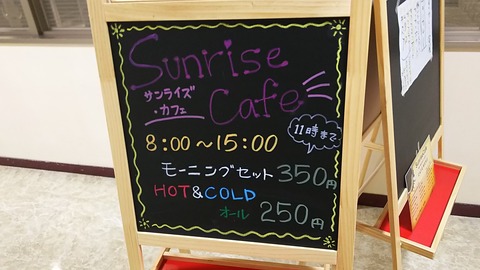 Sunrise
サンライズ
・カフェ
Cafe
8:00〜15:00
11時まで
モーニングセット 350円
HOT&COLD
オール 250円